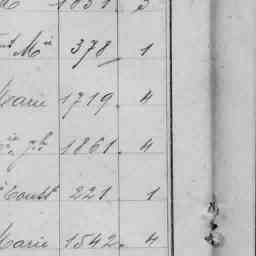 1831. 3
Mie 378, 1
Marie 1719. 4
1861. 4
221. 1
Marie 1542. 4